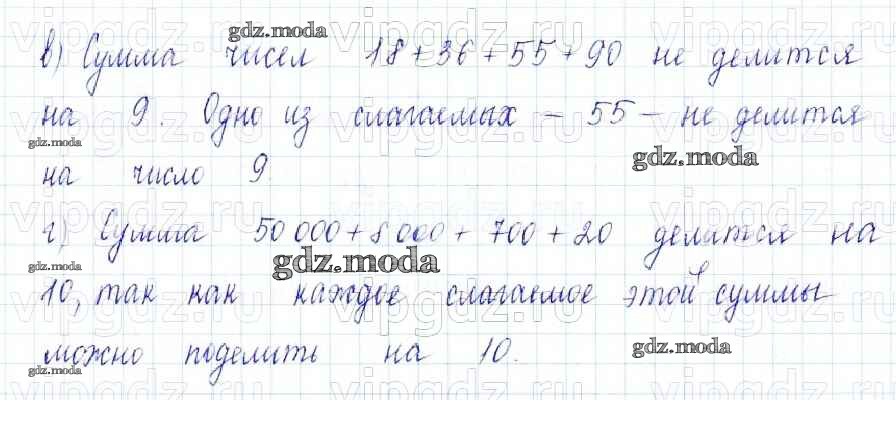 в) Сумма чисел 18 + 36 + 55 + 90 не делится
на 9. Одно из слагаемых – 55 – не делится
на число 9.
г) Сумма 50 000 + 8 000 + 700 + 20 делится на
10, так как каждое слагаемое этой суммы
можно поделить на 10.
gdz.moda
gdz.moda
gdz.moda
gdz.moda
gdz.moda
gdz.moda
gdz.moda
vipgdz.ru
vipgdz.ru
vipgdz.ru
vipgdz.ru